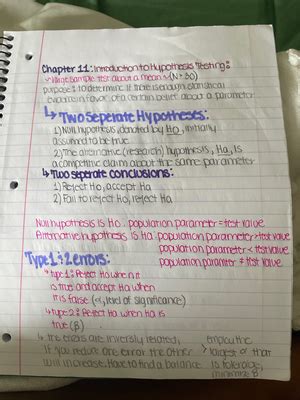 Chapter 11: Introduction to Hypothesis Testing:
~ large sample test about a mean ~ (N>30)
purpose: to determine if there is enough statistical
evidence in favor of a certain belief about a parameter
↳ Two Seperate Hypotheses:
1) Null hypothesis, denoted by Ho, initially
assumed to be true
2) The alternative (research) hypothesis, Ha, is
a competitive claim about the same parameter
↳ Two seperate conclusions:
1) Reject Ho, accept Ha
2) Fail to reject Ho, reject Ha
Null hypothesis is Ho: population parameter = test value
Alternative hypothesis is Ha: population parameter > test value
population parameter < test value
population parameter ≠ test value
Type 1 & 2 errors:
* type 1: Reject Ho when it
is true and accept Ha when
it is false (α, level of significance)
* type 2: Reject Ha when Ha is
true (β)
↳ the errors are inversly related,
if you reduce one error the other
will increase. Have to find a balance
employ the
largest α that
is tolerable,
minimize β